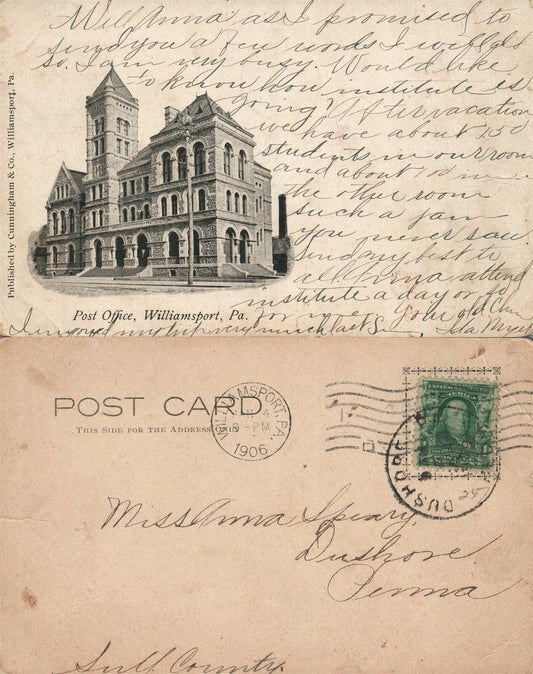 Well Anna as I promised to
send you a few words I will do
so. I am very busy. Would like
to know how institute is
going? After vacation
we have about 150
students in our room
and about 100 in
the other room
such a jam
you never saw.
Send my best to
all. Anna attend
institute a day or so
for me. Your old Chum
I enjoyed my trip very much last
Published by Cunningham & Co., Williamsport, Pa.
Post Office, Williamsport, Pa.
POST CARD
THIS SIDE FOR THE ADDRESS ONLY
WILLIAMSPORT, PA.
8-PM
1906
DUSHORE
Miss Anna Speary,
Dushore
Penna
Sull. County.